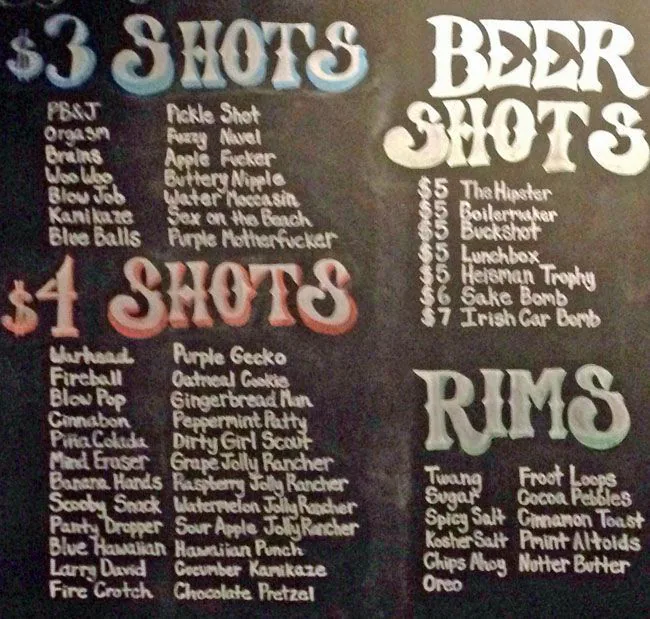 $3 SHOTS
PB&J Pickle Shot
Orgasm Fuzzy Navel
Brains Apple Fucker
Woo Woo Buttery Nipple
Blow Job Water Moccasin
Kamikaze Sex on the Beach
Blue Balls Purple Motherfucker
$4 SHOTS
Warhead Purple Gecko
Fireball Oatmeal Cookie
Blow Pop Gingerbread Man
Cinnabon Peppermint Patty
Piña Colada Dirty Girl Scout
Mind Eraser Grape Jolly Rancher
Banana Hands Raspberry Jolly Rancher
Scooby Snack Watermelon Jolly Rancher
Panty Dropper Sour Apple Jolly Rancher
Blue Hawaiian Hawaiian Punch
Larry David Cucumber Kamikaze
Fire Crotch Chocolate Pretzel
BEER
SHOTS
$5 The Hipster
$5 Boilermaker
$5 Buckshot
$5 Lunchbox
$5 Heisman Trophy
$6 Sake Bomb
$7 Irish Car Bomb
RIMS
Twang Froot Loops
Sugar Cocoa Pebbles
Spicy Salt Cinnamon Toast
Kosher Salt Pmint Altoids
Chips Ahoy Nutter Butter
Oreo